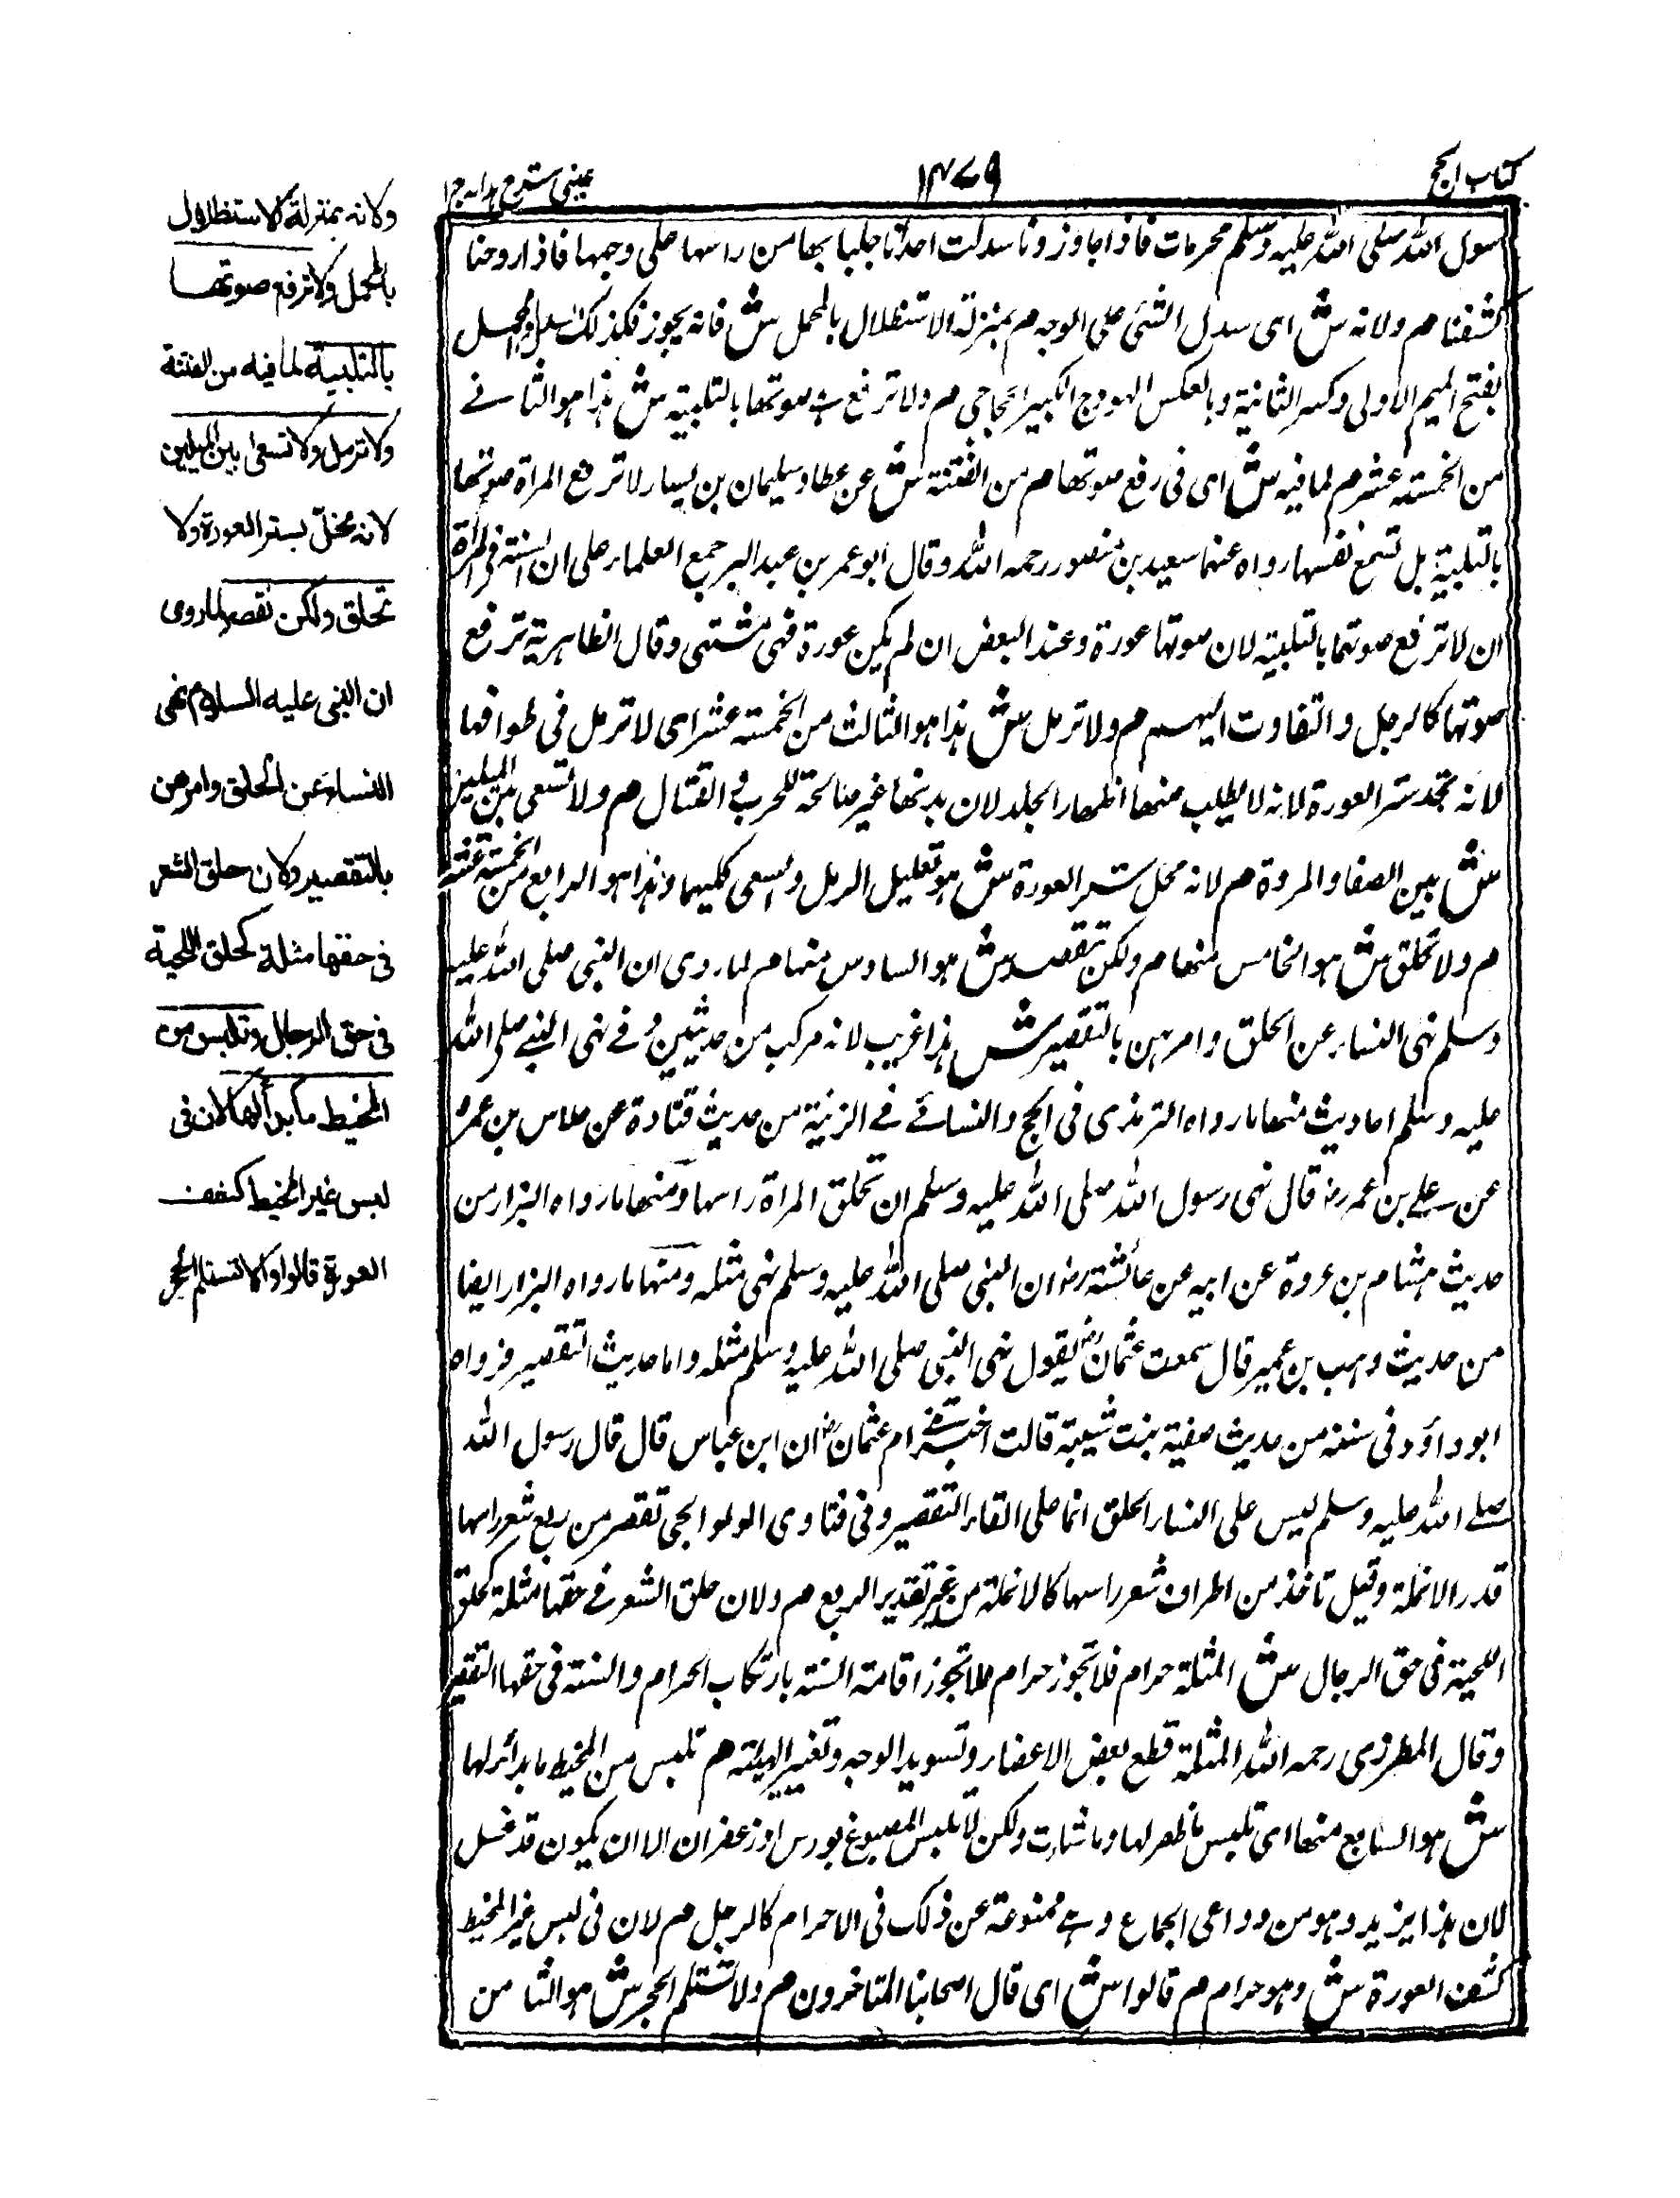 كتاب الحج
١٤٧٩
عينى شرح هدايه ج ١
رسول الله صلى الله عليه وسلم محرمات فاذا جاوزونا سدلت احدانا جلبابها من راسها على وجهها فاذا روحنا
كشفنا م ولانه ش اى سدل الشئى على الوجه م بمنزلة الاستظلال بالمحمل ش فانه يجوز فكذلك والمحمل
بفتح الميم الاولى وكسر الثانية وبالعكس الهودج الكبير الحجاجى م ولا ترفع صوتها بالتلبية ش هذا هو الثانے
من الخمسة عشر م لما فيه ش اى فى رفع صوتها م من الفتنة ش عن عطا وسليمان بن يسار لا ترفع المراة صوتها
بالتلبية بل تسمع نفسها رواه عنهما سعيد بن منصور رحمه الله وقال ابو عمر بن عبد البر جمع العلماء على ان السنة فى المراة
ان لا ترفع صوتها بالتلبية لان صوتها عورة وعند البعض ان لم يكن عورة فهى مشتهى وقال الظاهرية ترفع
صوتها كالرجل والتفاوت اليهم م ولا ترمل ش هذا هو الثالث من الخمسة عشر اى لا ترمل فى طوافها
لانه ستر العورة لانه لا يطلب منها اظهار الجلد لان بدنها غير صالحة للحرب فى القتال م ولا تسعى بين الميلين
ش بين الصفا والمروة م لانه مخل بستر العورة ش هو تعليل الرمل والسعى كليهما وهذا هو الرابع من الخمسة عشر
م ولا تحلق ش هو الخامس منها م ولكن تقصر ش هو السادس منها م لما روى ان النبى صلى الله عليه
وسلم نهى النساء عن الحلق وامرهن بالتقصير ش هذا غريب لانه مركب من حديثين فے نهى النبے صلى الله
عليه وسلم احاديث منها ما رواه الترمذى فى الحج والنسائے فے الزنية من حديث قتادة عن خلاس بن عمر
عن علے بن عمر رض قال نهى رسول الله صلى الله عليه وسلم ان تحلق المراة راسها ومنها ما رواه البزار من
حديث هشام بن عروة عن ابيه عن عائشة رض ان النبى صلى الله عليه وسلم نهى مثله ومنها ما رواه البزار ايضا
من حديث وهب بن عمير قال سمعت عثمان رض يقول نهى النبى صلى الله عليه وسلم مثله واما حديث التقصير فرواه
ابو داؤد فى سننه من حديث صفية بنت شيبة قالت اخبرتنے ام عثمان رض ان ابن عباس قال قال رسول الله
صلے الله عليه وسلم ليس على النساء الحلق انما على النساء التقصير وفى فتاوى الولوالجى تقصر من ربع شعر راسها
قدر الانملة وقيل تاخذ من اطراف شعر راسها كالانملة من غير تقدير الربع م ولان حلق الشعر فے حقها مثلة كحلق
اللحية فى حق الرجال ش المثلة حرام فلا تجوز حرام فلا تجوز اقامة السنة بارتكاب الحرام والسنة فى حقها التقصير
وقال المطرزى رحمه الله المثلة قطع بعض الاعضاء وتسويد الوجه وتغيير الهيئة م تلبس من المخيط ما بدا لها
ش هو السابع منها اى تلبس ما ظهر لها وما شاءت ولكن لا تلبس المصبوغ بورس او زعفران الا ان يكون قد غسل
لان هذا يزيد وهو من دواعى الجماع وهے ممنوعة عن ذلك فى الاحرام كالرجل م لان فى لبس غير المخيط
كشف العورة ش وهو حرام م قالوا ش اى قال اصحابنا المتاخرون م ولا تستلم الحجر ش هو الثامن
ولانه بمنزلة الاستظلال
بالمحمل ولا ترفع صوتها
بالتلبية لما فيه من الفتنة
ولا ترمل ولا تسعى بين الميلين
لانه مخل بستر العورة ولا
تحلق ولكن تقصر لما روى
ان النبى عليه السلام نهى
النساء عن الحلق وامرهن
بالتقصير ولان حلق الشعر
فى حقها مثلة كحلق اللحية
فى حق الرجال وتلبس من
المخيط ما بدا لها لان فى
لبس غير المخيط كشف
العورة قالوا ولا تستلم الحجر